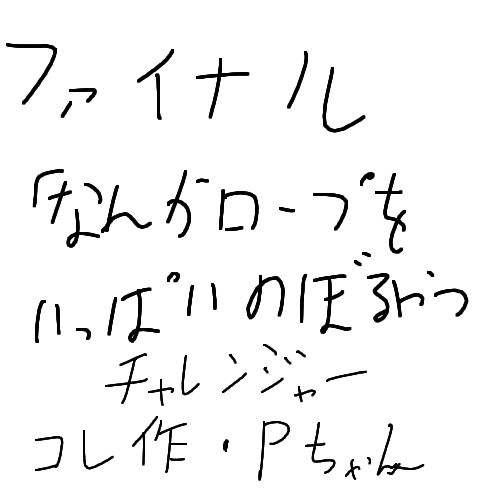 ファイナル
「なんかロープを
いっぱいのぼるやつ
チャレンジャー
コレ作・Pちゃん